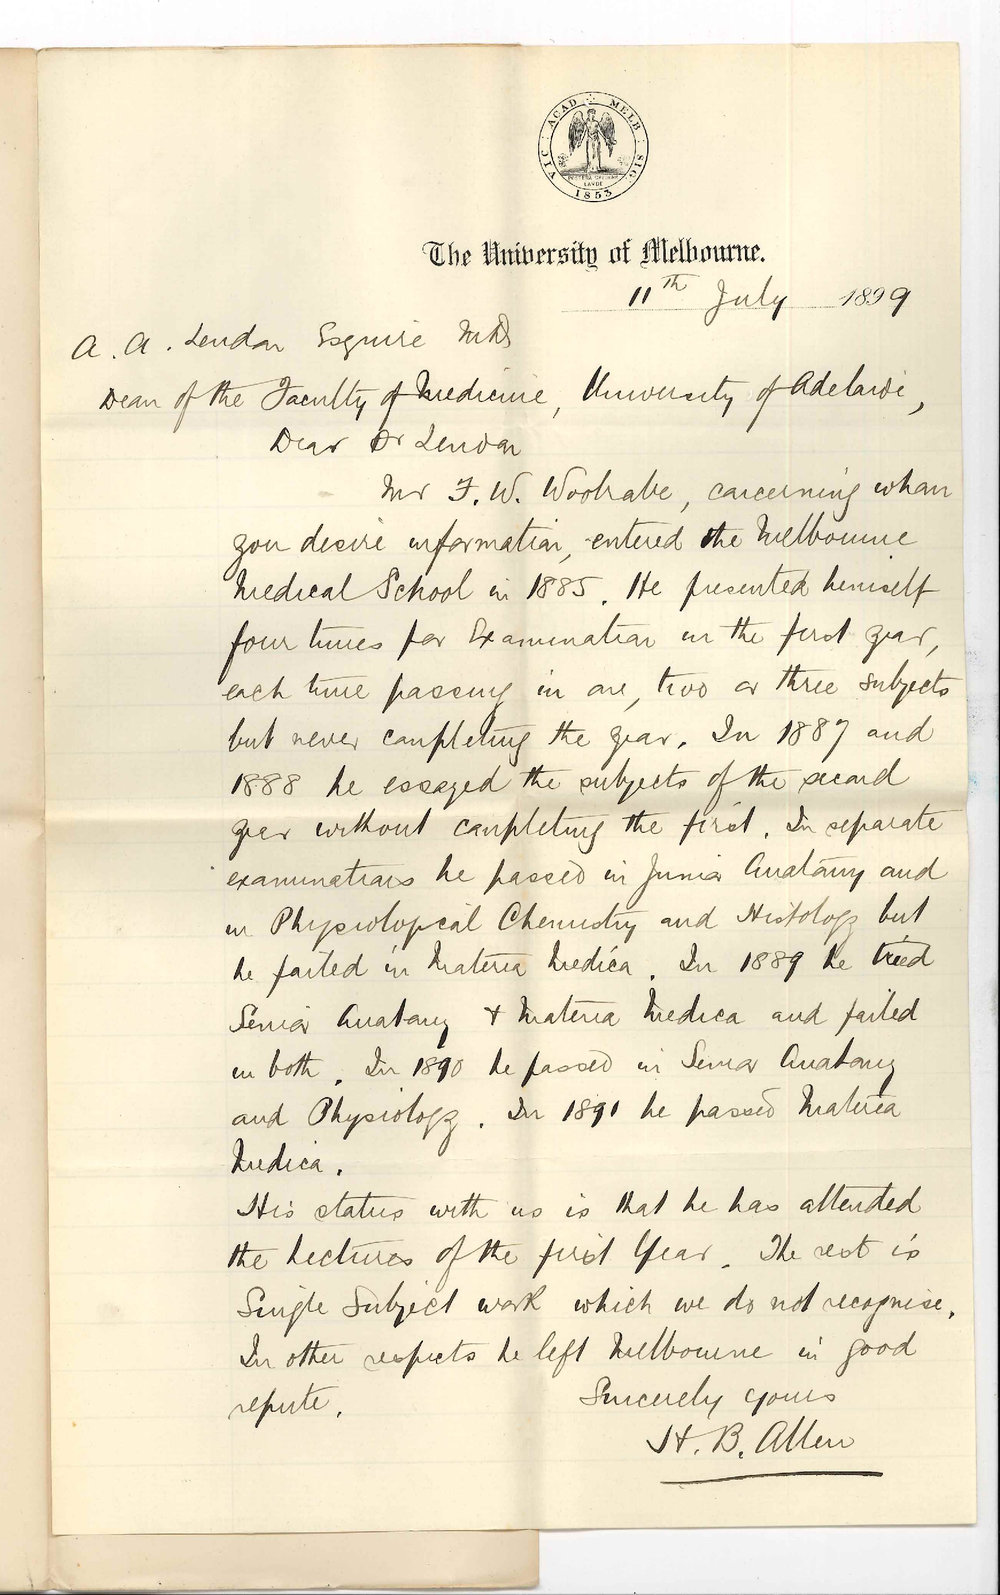 VIC · ACAD · MELB · SIG ·
POSTERA CRESCAM
LAVDE
1853
The University of Melbourne.
11th July 1899
A. A. Lendon Esquire MD
Dean of the Faculty of Medicine, University of Adelaide,
Dear Dr Lendon
Mr F. W. Woolrabe, concerning whom
you desire information, entered the Melbourne
Medical School in 1885. He presented himself
four times for Examination in the first year,
each time passing in one, two or three subjects
but never completing the year. In 1887 and
1888 he essayed the subjects of the second
year without completing the first. In separate
examinations he passed in Junior Anatomy and
in Physiological Chemistry and Histology but
he failed in Materia Medica. In 1889 he tried
Senior Anatomy & Materia Medica and failed
in both. In 1890 he passed in Senior Anatomy
and Physiology. In 1891 he passed Materia
Medica.
His status with us is that he has attended
the Lectures of the first Year. The rest is
Single Subject work which we do not recognise.
In other respects he left Melbourne in good
repute.
Sincerely yours
H. B. Allen